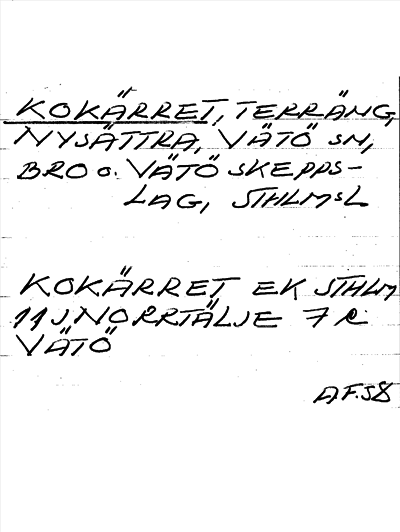 KOKÄRRET, TERRÄNG,
NYSÄTTRA, VÄTÖ SN,
BRO O. VÄTÖ SKEPPS-
LAG, STHLMSL
KOKÄRRET EK STHLM
11J NORRTÄLJE 7 R
VÄTÖ
AF.58